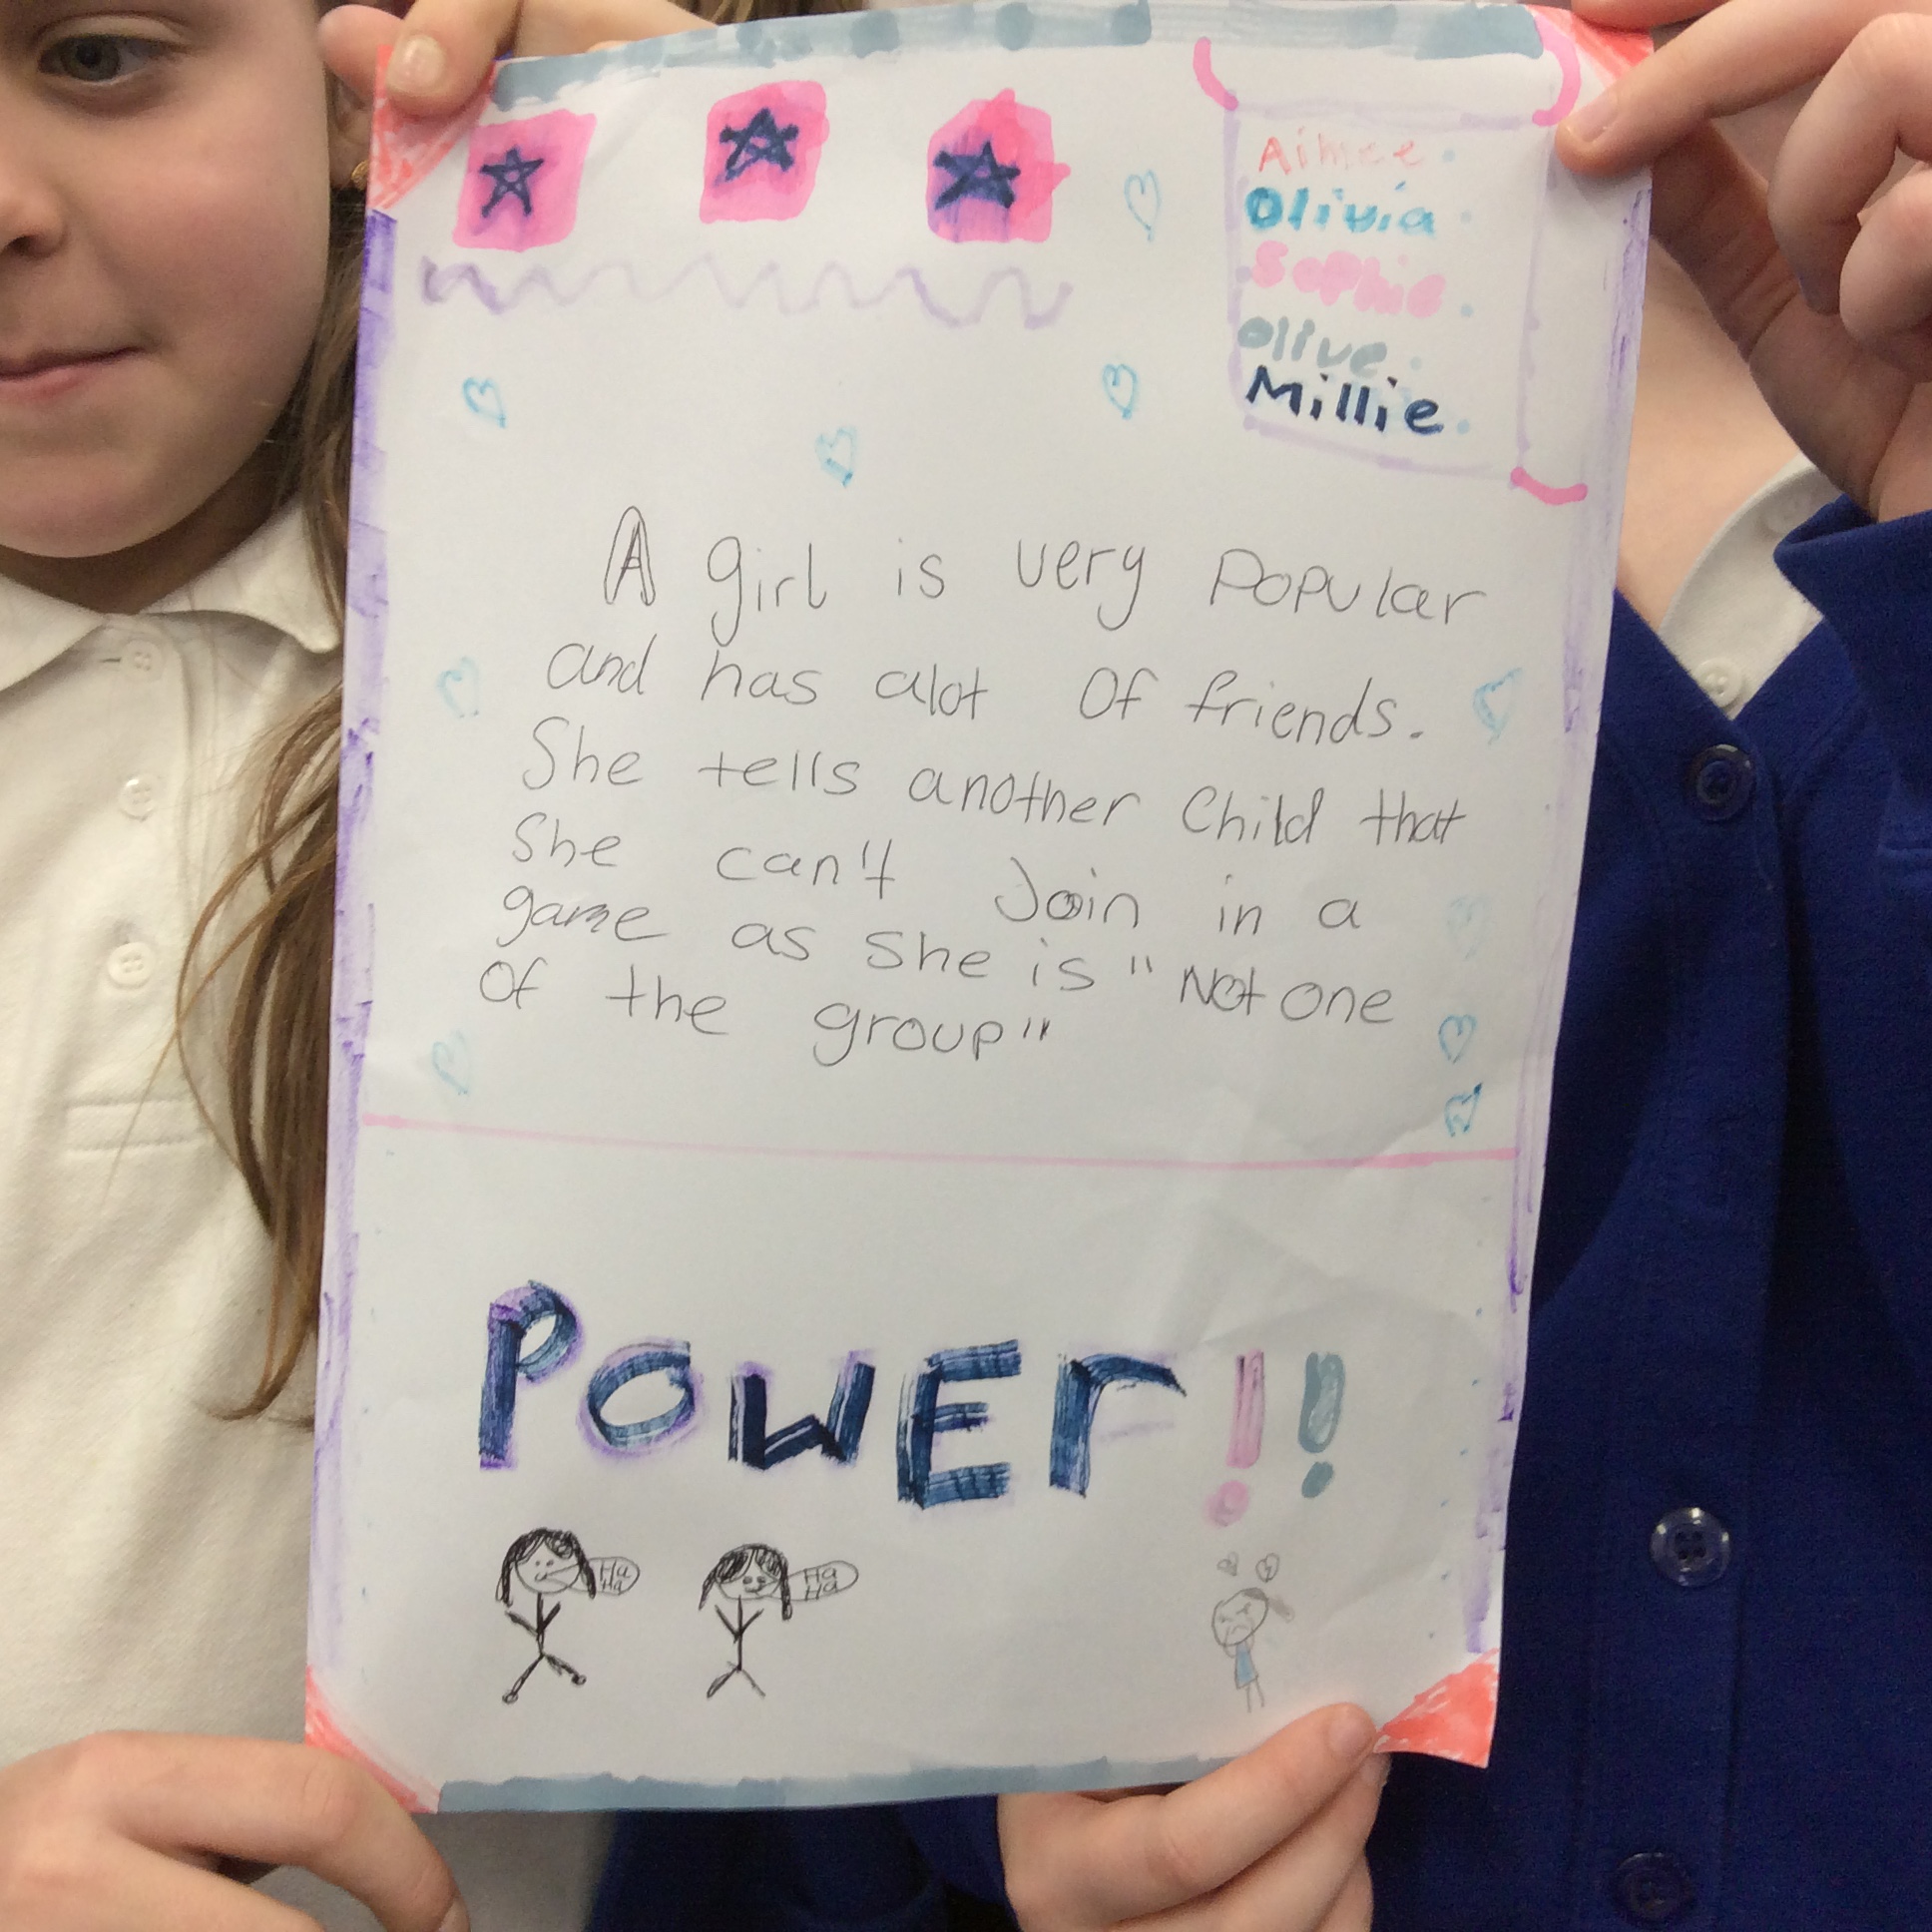 Aimee.
Olivia.
Sophie.
Olive.
Millie.
A girl is very popular
and has alot of friends.
She tells another Child that
She can't Join in a
game as she is "Not one
of the group"
POWEr!!
Ha Ha
Ha Ha